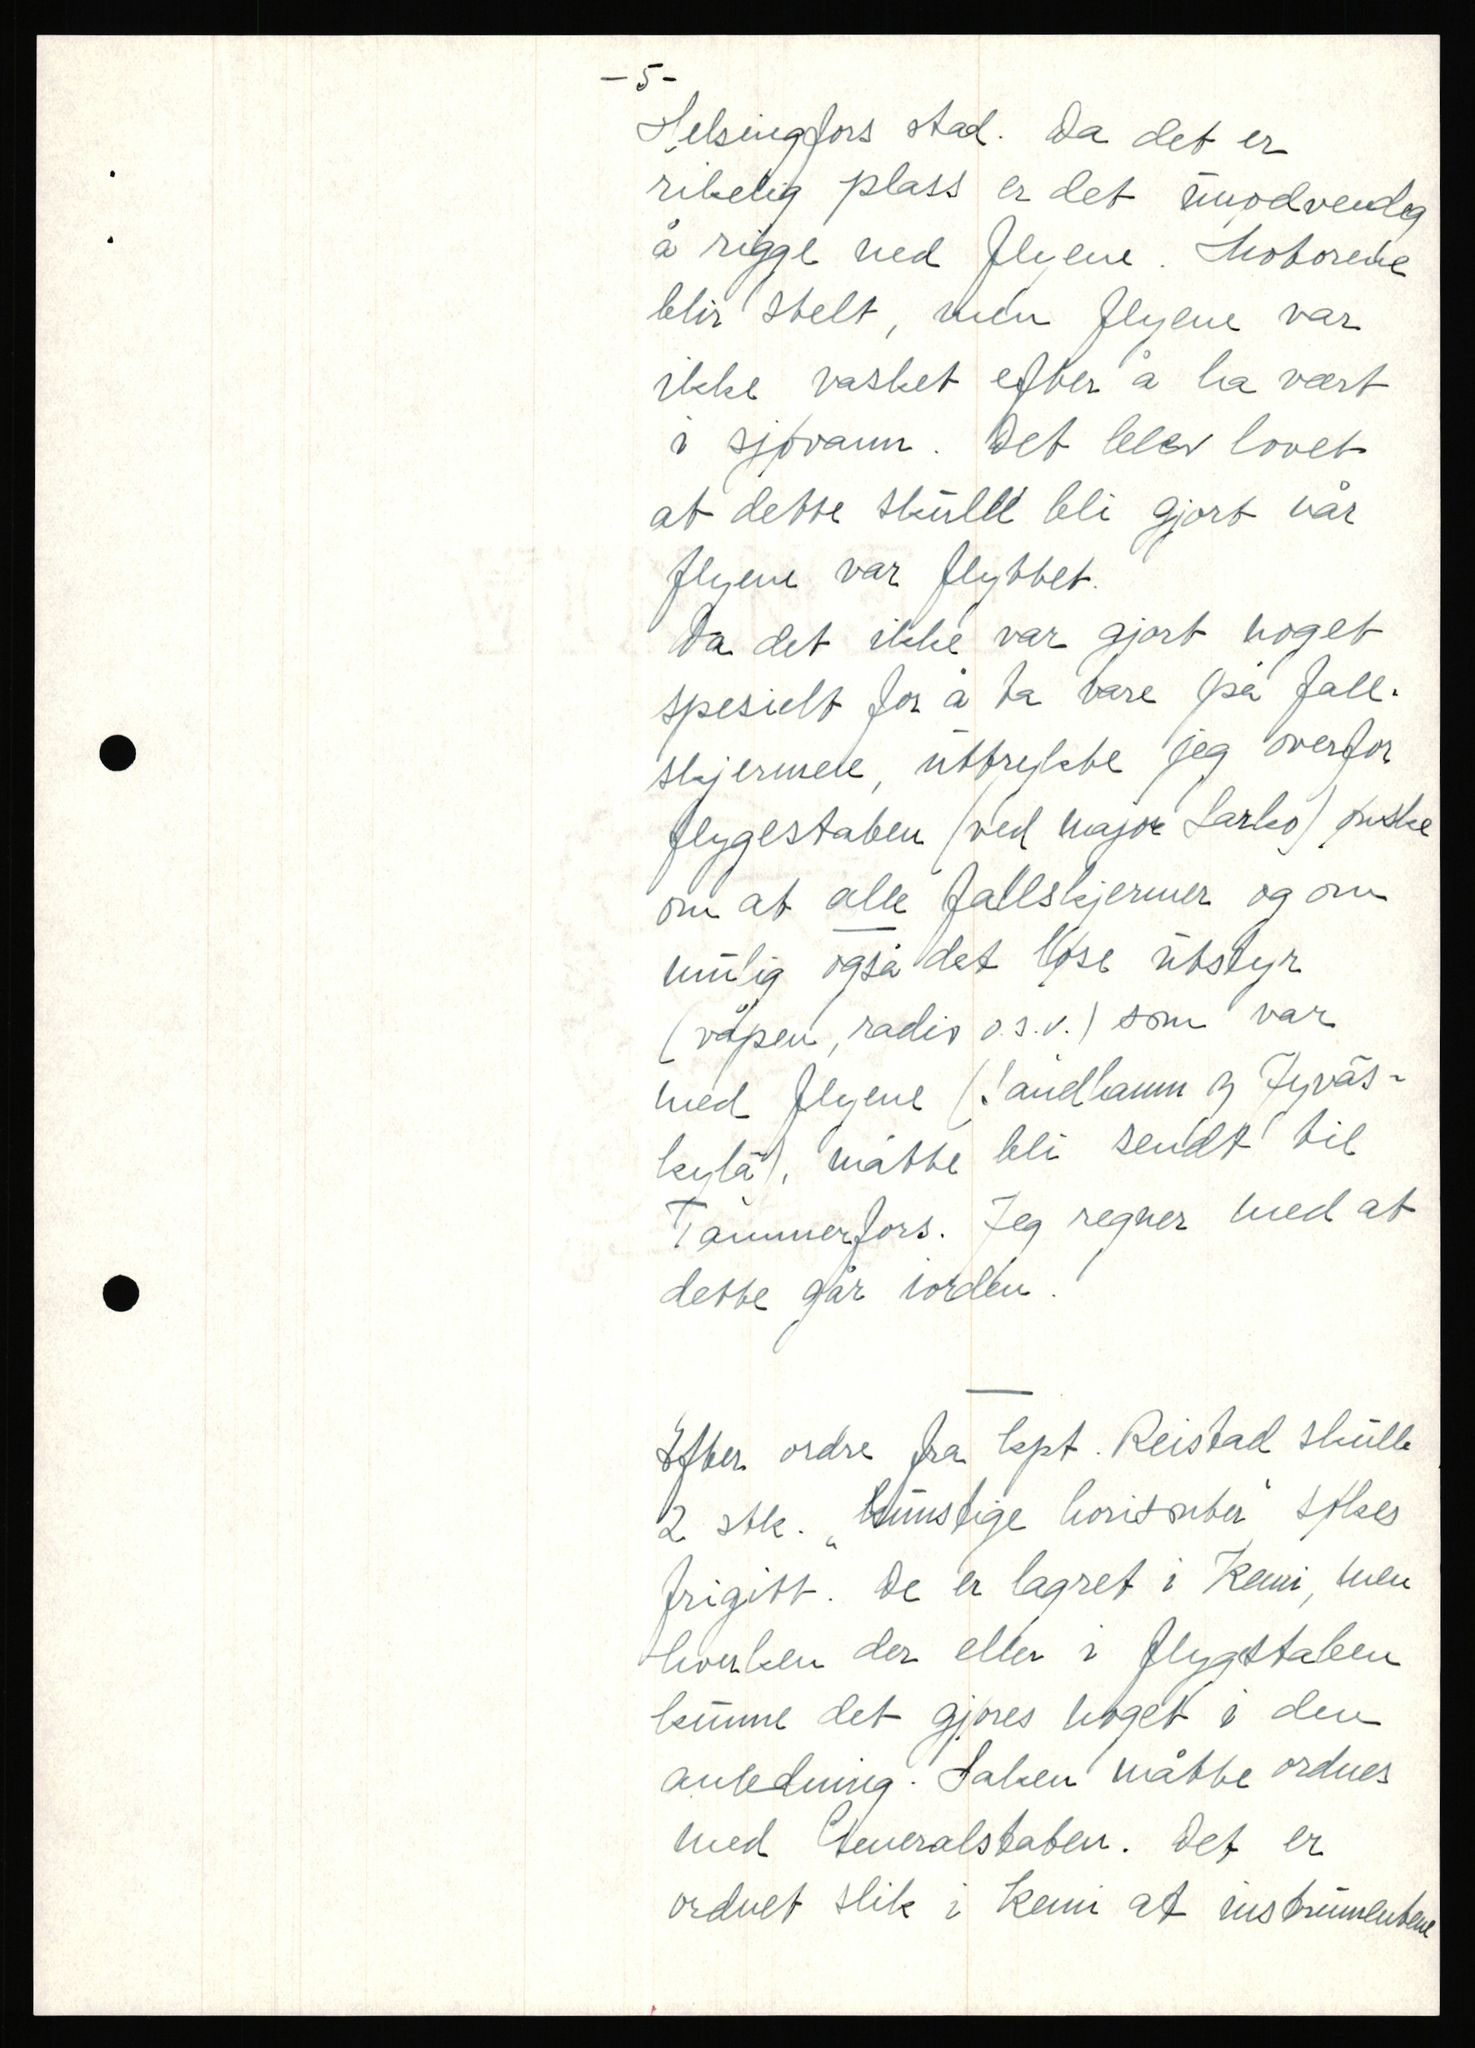 -5-
Helsingfors stad. Da det er
rikelig plass er det unødvendig
å rigge ned flyene. Motorene
blir stelt, men flyene var
ikke vasket efter å ha vært
i sjøvann. Det blev lovet
at dette skulle bli gjort når
flyene var flyttet.
Da det ikke var gjort noget
spesielt for å ta vare på fall-
skjermene, uttrykte jeg overfor
flygestaben (ved major Sarko) ønske
om at alle fallskjermer og om
mulig også det løse utstyr
(våpen, radio o.s.v.) som var
med flyene (Sandhamn og Jyväs-
kylä), måtte bli sendt til
Tammerfors. Jeg regner med at
dette går iorden.
Efter ordre fra kpt. Reistad skulle
2 stk. „kunstige horisonter" søkes
frigitt. De er lagret i Kemi, men
hverken der eller i flygstaben
kunne det gjøres noget i den
anledning. Saken måtte ordnes
med Generalstaben. Det er
ordnet slik i Kemi at instrumentene